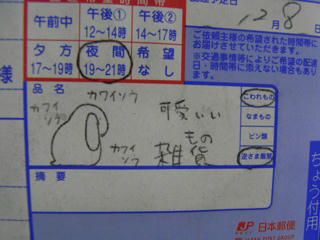 12 8
午前中
午後①
12～14時
午後②
14～17時
ご依頼主様の希望された時間帯に
お届けさせていただきます。
※交通事情等によりご希望の配達
日・時間帯に添えない場合もあり
ます。
夕方
17～19時
夜間
19～21時
希望
なし
様
品名
カワイソウ
カワイ
可愛いい
もの
雑貨
カワイ
こわれもの
なまもの
ビン類
逆さま厳禁
摘要
JP 日本郵便
ちょう付用